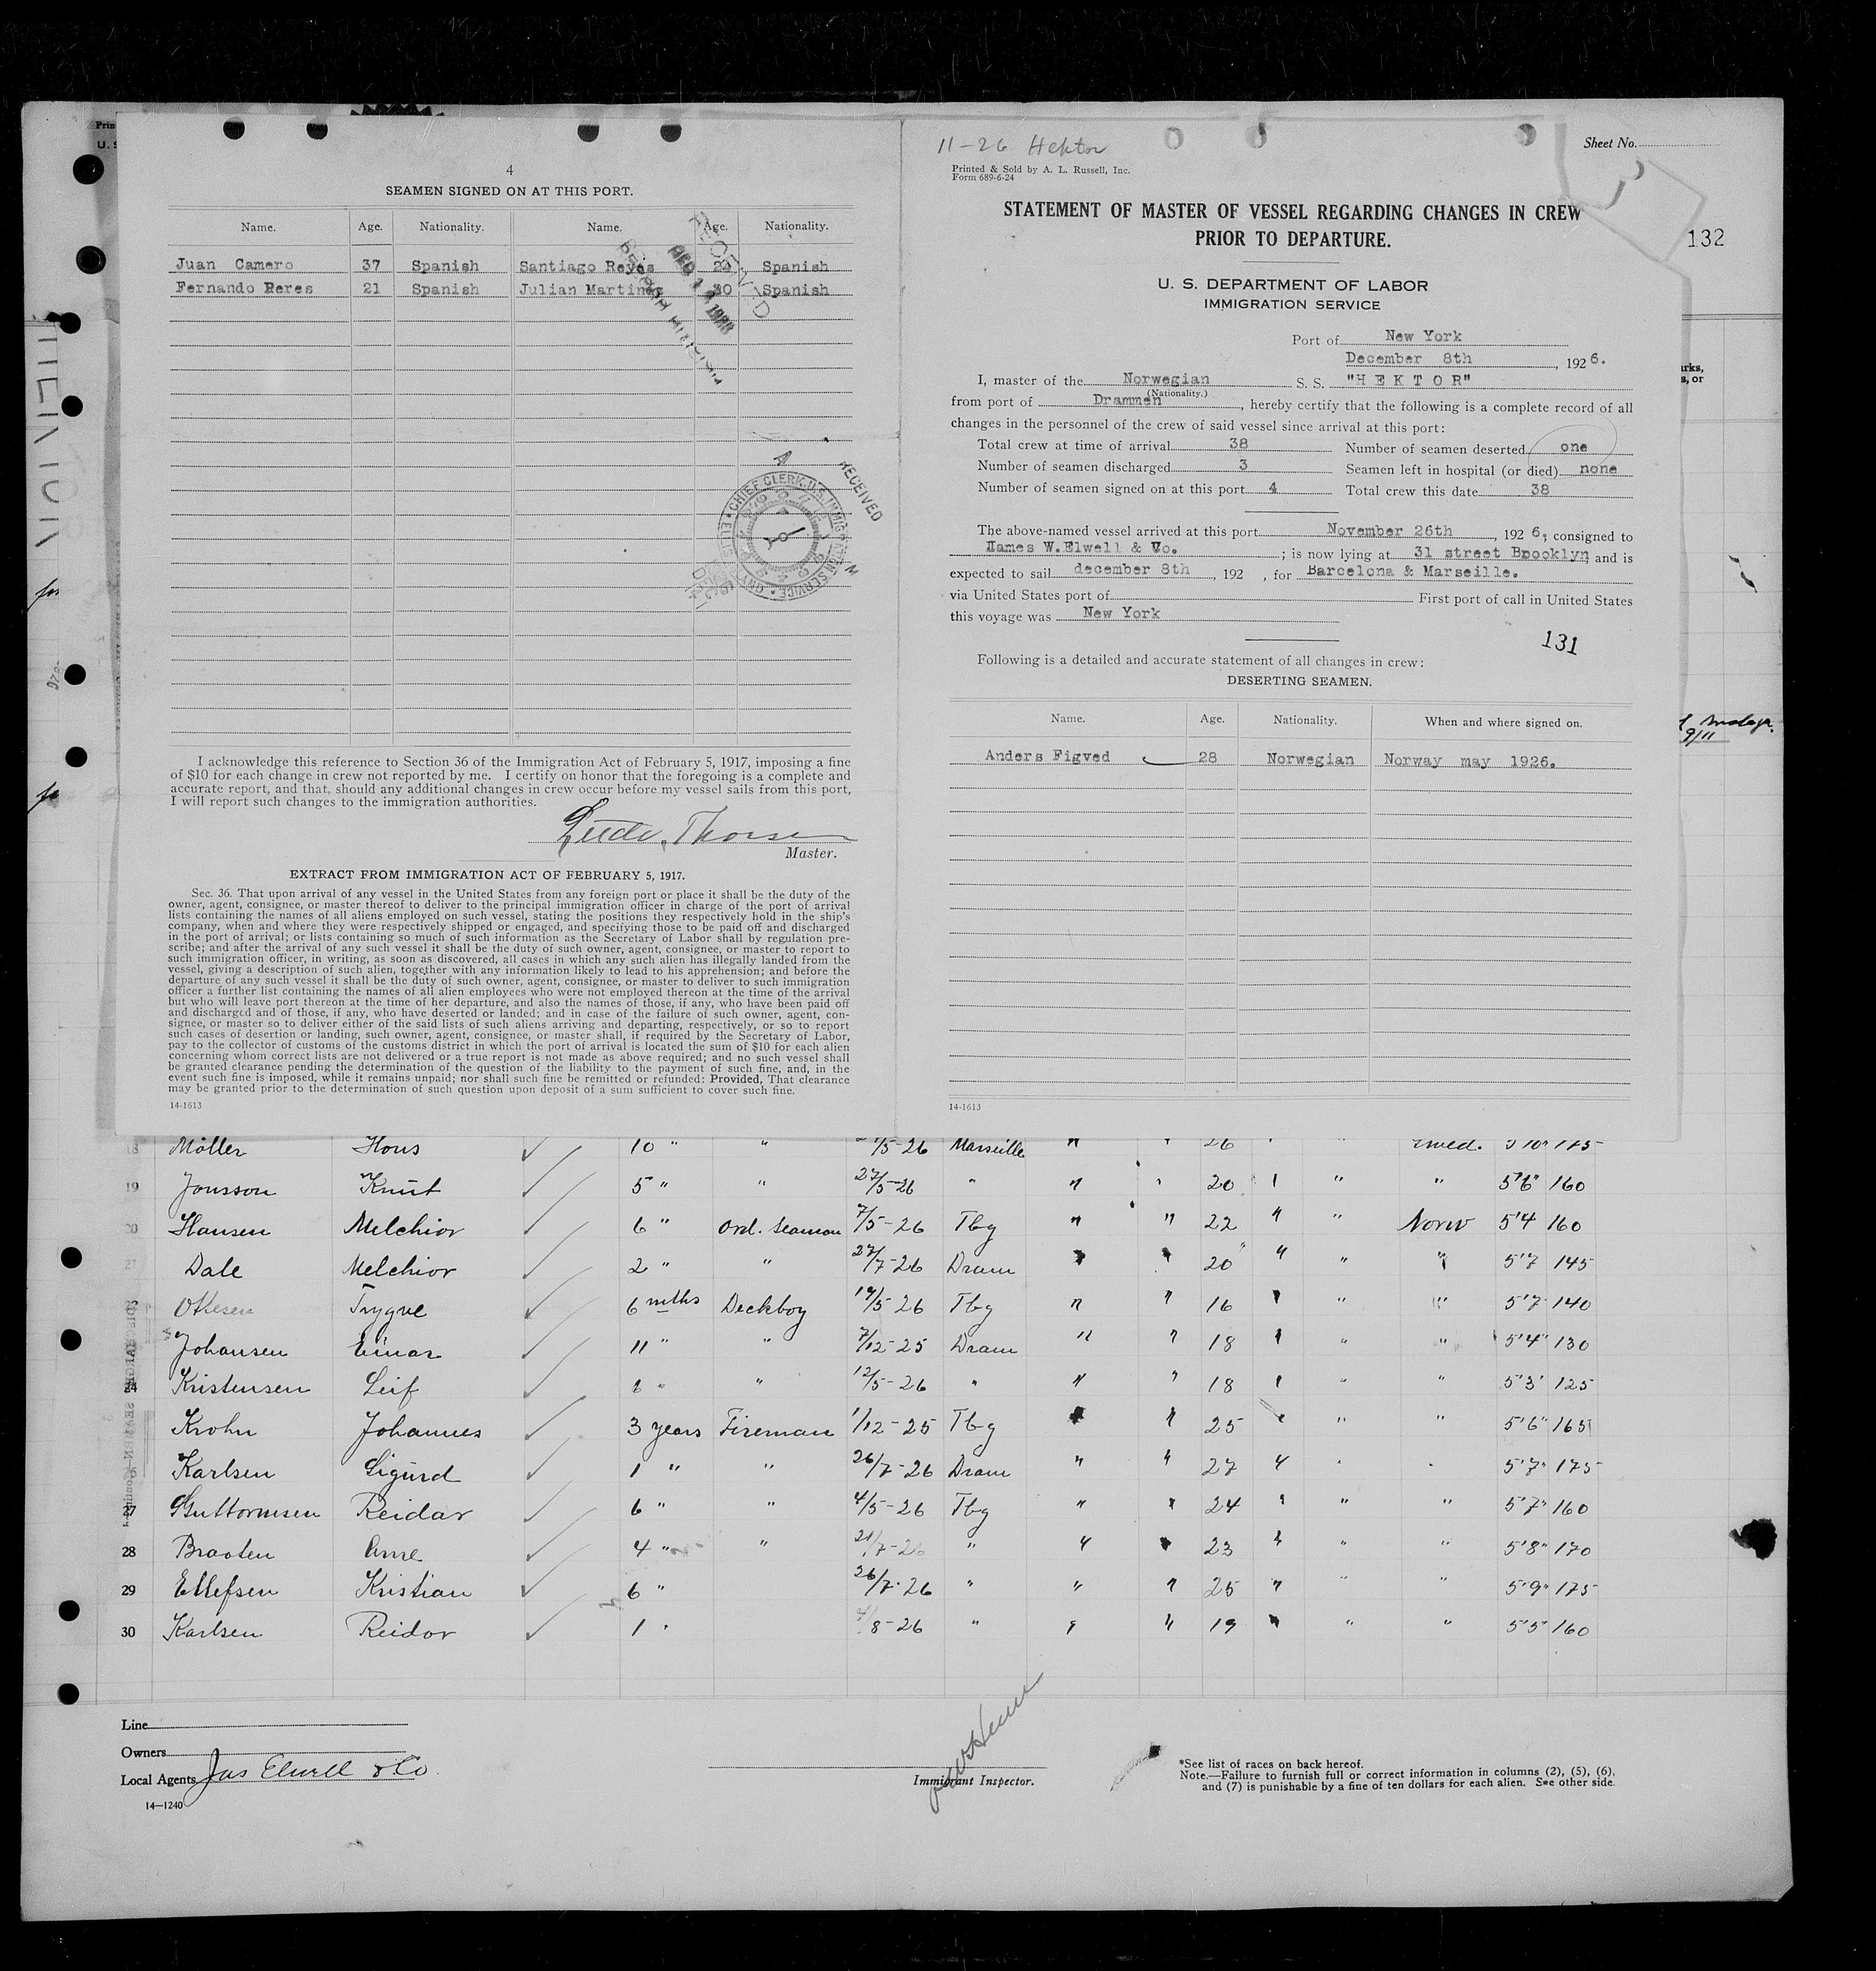 4
SEAMEN SIGNED ON AT THIS PORT.
Name. Age. Nationality. Name. Age. Nationality.
Juan Camero 37 Spanish Santiago Reyes 24 Spanish
Fernando Peres 21 Spanish Julian Martinez 30 Spanish
RECEIVED
CHIEF CLERK, U.S. IMMIGRATION SERVICE
RECEIVED
I acknowledge this reference to Section 36 of the Immigration Act of February 5, 1917, imposing a fine
of $10 for each change in crew not reported by me. I certify on honor that the foregoing is a complete and
accurate report, and that, should any additional changes in crew occur before my vessel sails from this port,
I will report such changes to the immigration authorities.
Thorsen
Master.
EXTRACT FROM IMMIGRATION ACT OF FEBRUARY 5, 1917.
Sec. 36. That upon arrival of any vessel in the United States from any foreign port or place it shall be the duty of the
owner, agent, consignee, or master thereof to deliver to the principal immigration officer in charge of the port of arrival
lists containing the names of all aliens employed on such vessel, stating the positions they respectively hold in the ship's
company, when and where they were respectively shipped or engaged, and specifying those to be paid off and discharged
in the port of arrival; or lists containing so much of such information as the Secretary of Labor shall by regulation pre-
scribe; and after the arrival of any such vessel it shall be the duty of such owner, agent, consignee, or master to report to
such immigration officer, in writing, as soon as discovered, all cases in which any such alien has illegally landed from the
vessel, giving a description of such alien, together with any information likely to lead to his apprehension; and before the
departure of any such vessel it shall be the duty of such owner, agent, consignee, or master to deliver to such immigration
officer a further list containing the names of all alien employees who were not employed thereon at the time of the arrival
but who will leave port thereon at the time of her departure, and also the names of those, if any, who have been paid off
and discharged and of those, if any, who have deserted or landed; and in case of the failure of such owner, agent, con-
signee, or master so to deliver either of the said lists of such aliens arriving and departing, respectively, or so to report
such cases of desertion or landing, such owner, agent, consignee, or master shall, if required by the Secretary of Labor,
pay to the collector of customs of the customs district in which the port of arrival is located the sum of $10 for each alien
concerning whom correct lists are not delivered or a true report is not made as above required; and no such vessel shall
be granted clearance pending the determination of the question of the liability to the payment of such fine, and, in the
event such fine is imposed, while it remains unpaid; nor shall such fine be remitted or refunded: Provided, That clearance
may be granted prior to the determination of such question upon deposit of a sum sufficient to cover such fine.
14-1613
11-26 Hektor
Sheet No.
Printed & Sold by A. L. Russell, Inc.
Form 689-6-24
STATEMENT OF MASTER OF VESSEL REGARDING CHANGES IN CREW
PRIOR TO DEPARTURE.
132
U. S. DEPARTMENT OF LABOR
IMMIGRATION SERVICE
Port of New York
December 8th, 1926.
I, master of the Norwegian S. S. "H E K T O R"
(Nationality.)
from port of Drammen, hereby certify that the following is a complete record of all
changes in the personnel of the crew of said vessel since arrival at this port:
Total crew at time of arrival 38 Number of seamen deserted one
Number of seamen discharged 3 Seamen left in hospital (or died) none
Number of seamen signed on at this port 4 Total crew this date 38
The above-named vessel arrived at this port November 26th, 1926, consigned to
James W.Elwell & Co.; is now lying at 31 street Brooklyn and is
expected to sail december 8th, 192 , for Barcelona & Marseille.
via United States port of First port of call in United States
this voyage was New York
131
Following is a detailed and accurate statement of all changes in crew:
DESERTING SEAMEN.
Name. Age. Nationality. When and where signed on.
Anders Figved 28 Norwegian Norway may 1926.
14-1613
18 Möller Hans 10 " " /5-26 Marseille " " 26 " " Swed. 5'10" 175
19 Jonsson Knut 5 " " 27/5-26 " " " 20 " " " 5'6" 160
20 Hansen Melchior 6 " Ord. Seaman 7/5-26 Tbg " " 22 " " Norw 5'4 160
21 Dale Melchior 2 " " 27/7-26 Dram " " 20 " " " 5'7 145
Ottesen Trygve 6 mths Deckboy 19/5 26 Tbg " " 16 " " " 5'7 140
Johansen Einar 11 " " 7/12-25 Dram " " 18 " " " 5'4" 130
24 Kristensen Leif 8 " " 12/5-26 " " " 18 " " " 5'3" 125
Krohn Johannes 3 years Fireman 1/12-25 Tbg " " 25 " " " 5'6" 165
Karlsen Sigurd 1 " " 26/7-26 Dram " " 27 " " " 5'7" 175
27 Guttormsen Reidar 6 " " 4/5-26 Tbg " " 24 " " " 5'7" 160
28 Braaten Arne 4 " " 21/7-26 " " " 23 " " " 5'8" 170
29 Ellefsen Kristian 6 " 26/7-26 " " " 25 " " " 5'9" 175
30 Karlsen Reidar 1 " /8-26 " " " 19 " " " 5'5" 160
Line
Owners
Local Agents Jas Elwell & Co.
14—1240
Immigrant Inspector.
*See list of races on back hereof.
Note.—Failure to furnish full or correct information in columns (2), (5), (6),
and (7) is punishable by a fine of ten dollars for each alien. See other side.